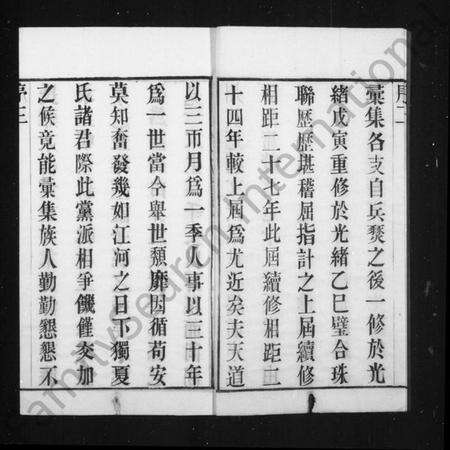 序二
彙集各支自兵燹之後一修於光
緒戊寅重修於光緒乙巳璧合珠
聯歷歷堪稽屈指計之上屆續修
相距二十七年此屆續修相距二
十四年較上屆爲尤近矣夫天道
以三而月爲一季人事以三十年
爲一世當今舉世頹靡因循苟安
莫知奮發幾如江河之日下獨夏
氏諸君際此黨派相爭饑饉交加
之候竟能彙集族人勤勤懇懇不
序三
FamilySearch International